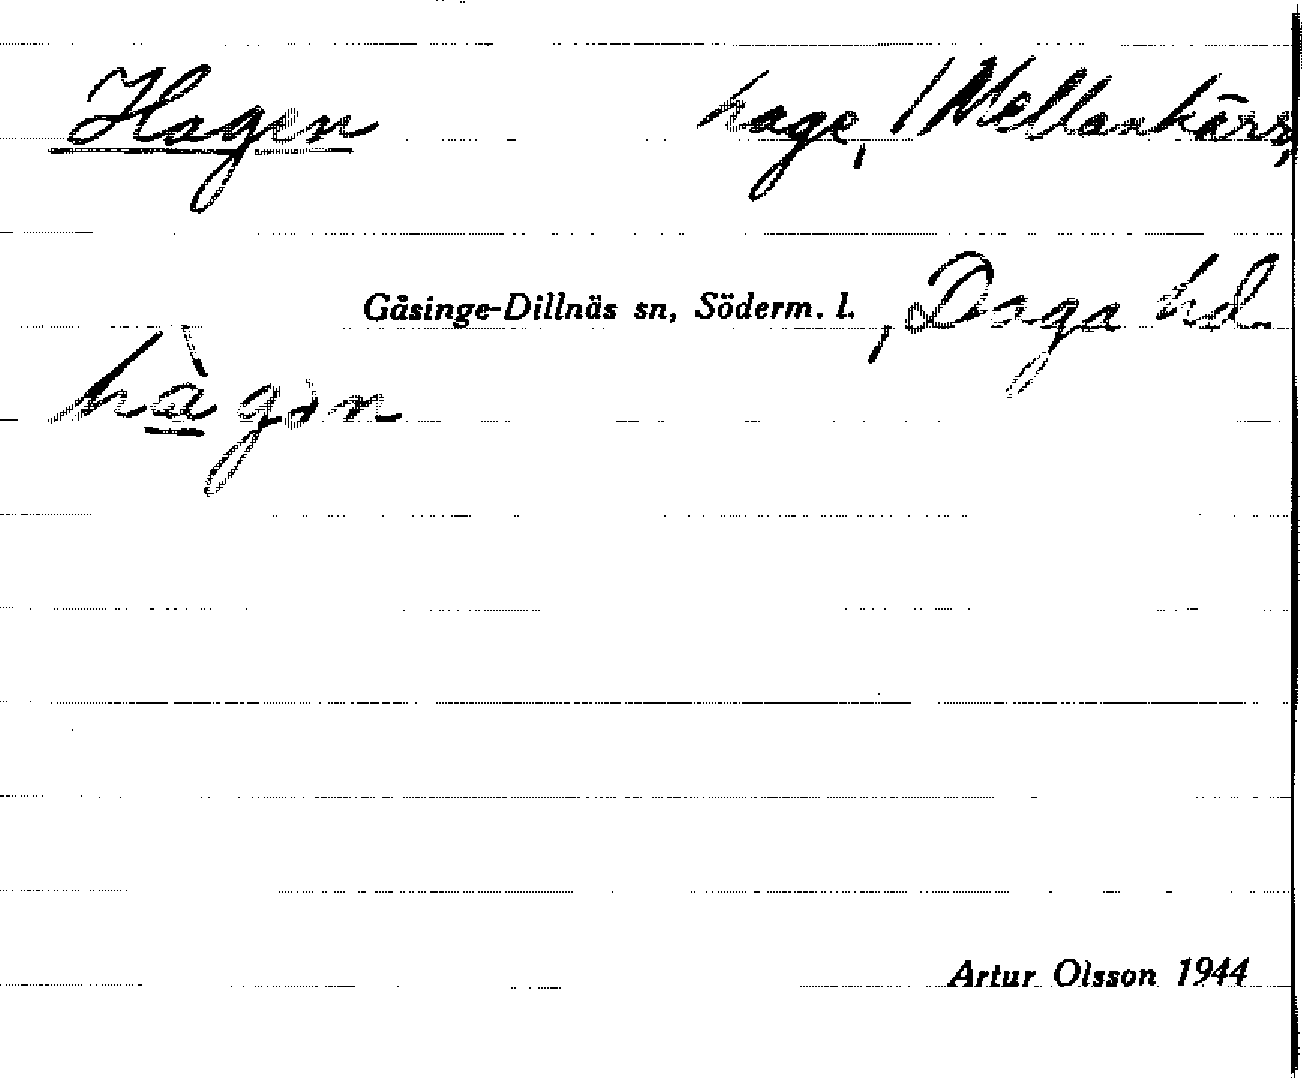 Hagen hage, /Mellankärr,
Gåsinge-Dillnäs sn, Söderm. l., Daga hd
hàgən
Artur Olsson 1944